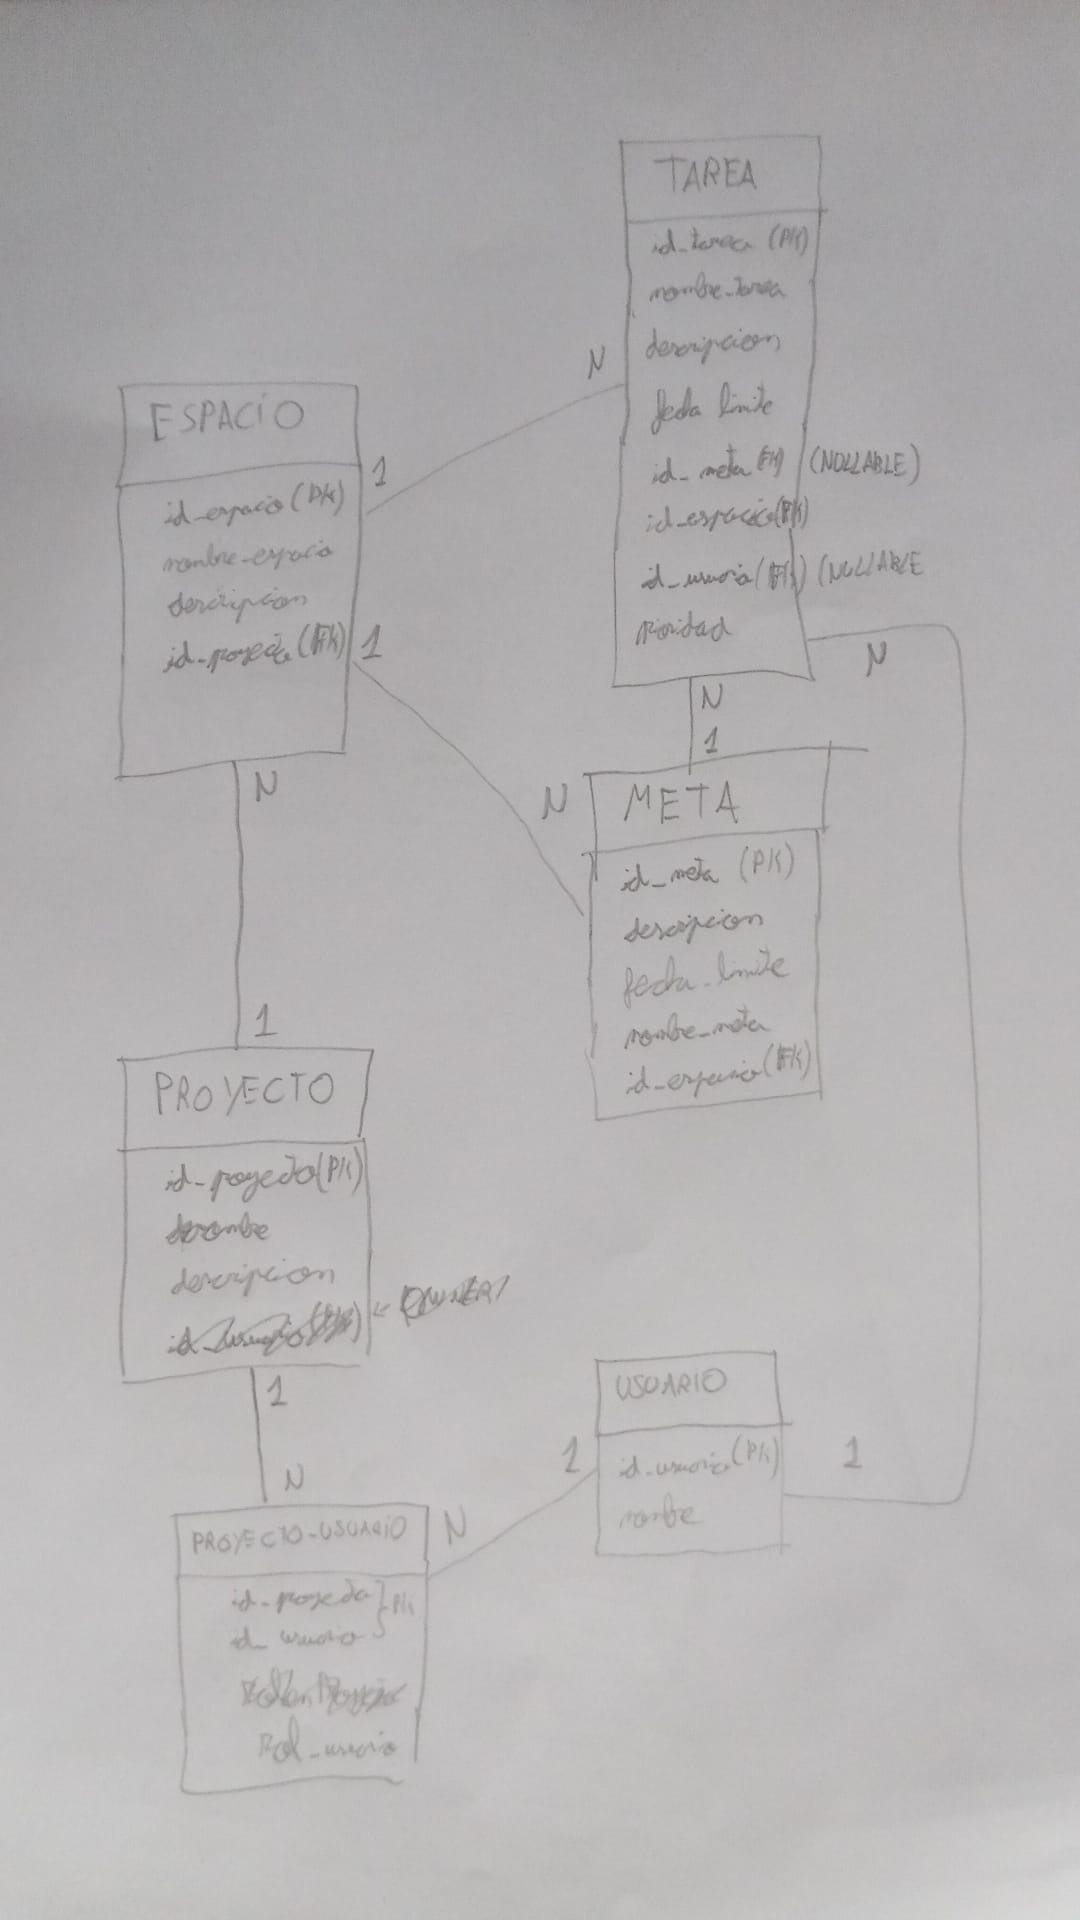 TAREA
id_tarea (PK)
nombre_tarea
descripcion
fecha limite
id_meta (FK) (NULLABLE)
id_espacio (FK)
id_usuario (FK) (NULLABLE
Prioridad
N
N
N
ESPACIO
1
id_espacio (PK)
nombre_espacio
descripcion
id_proyecto (FK)
1
N
1
META
N
id_meta (PK)
descripcion
fecha_limite
nombre_meta
id_espacio (FK)
1
PROYECTO
id_proyecto (PK)
nombre
descripcion
1
N
USUARIO
1
id_usuario (PK)
nombre
1
PROYECTO-USUARIO
N
id_proyecto } PK
id_usuario
Rol_usuario